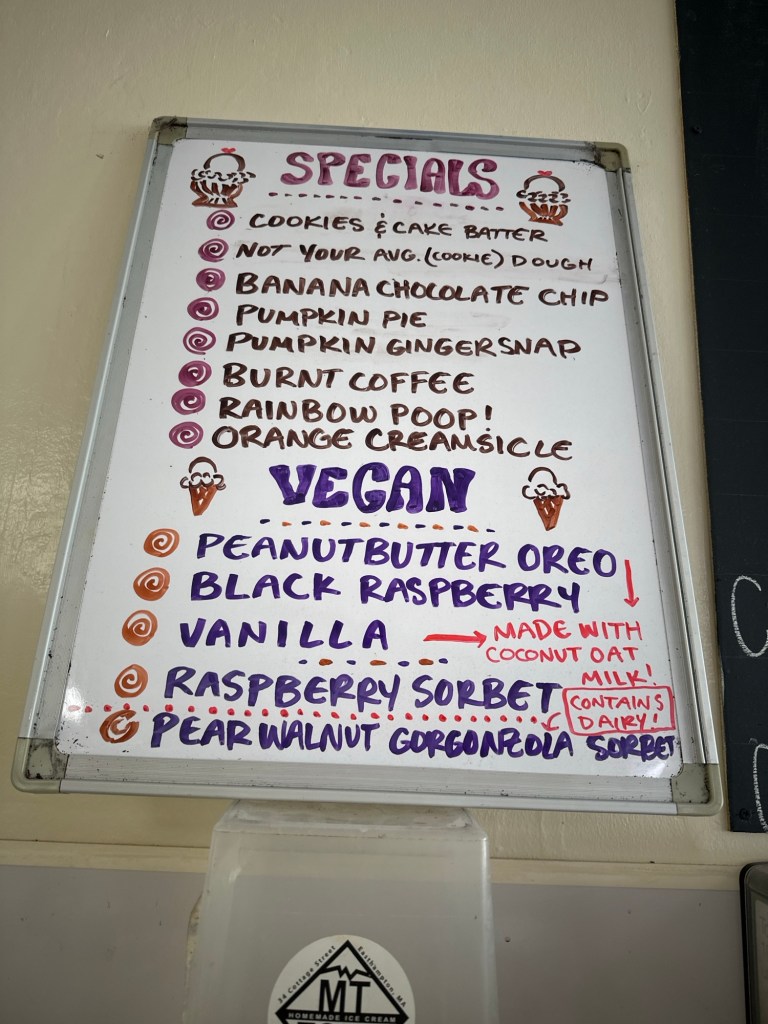 SPECIALS
COOKIES & CAKE BATTER
NOT YOUR AVG. (COOKIE) DOUGH
BANANA CHOCOLATE CHIP
PUMPKIN PIE
PUMPKIN GINGERSNAP
BURNT COFFEE
RAINBOW POOP!
ORANGE CREAMSICLE
VEGAN
PEANUTBUTTER OREO
BLACK RASPBERRY
VANILLA
MADE WITH
COCONUT OAT
MILK!
RASPBERRY SORBET
CONTAINS
DAIRY!
PEAR WALNUT GORGONZOLA SORBET
34 Cottage Street Easthampton, MA
MT
HOMEMADE ICE CREAM